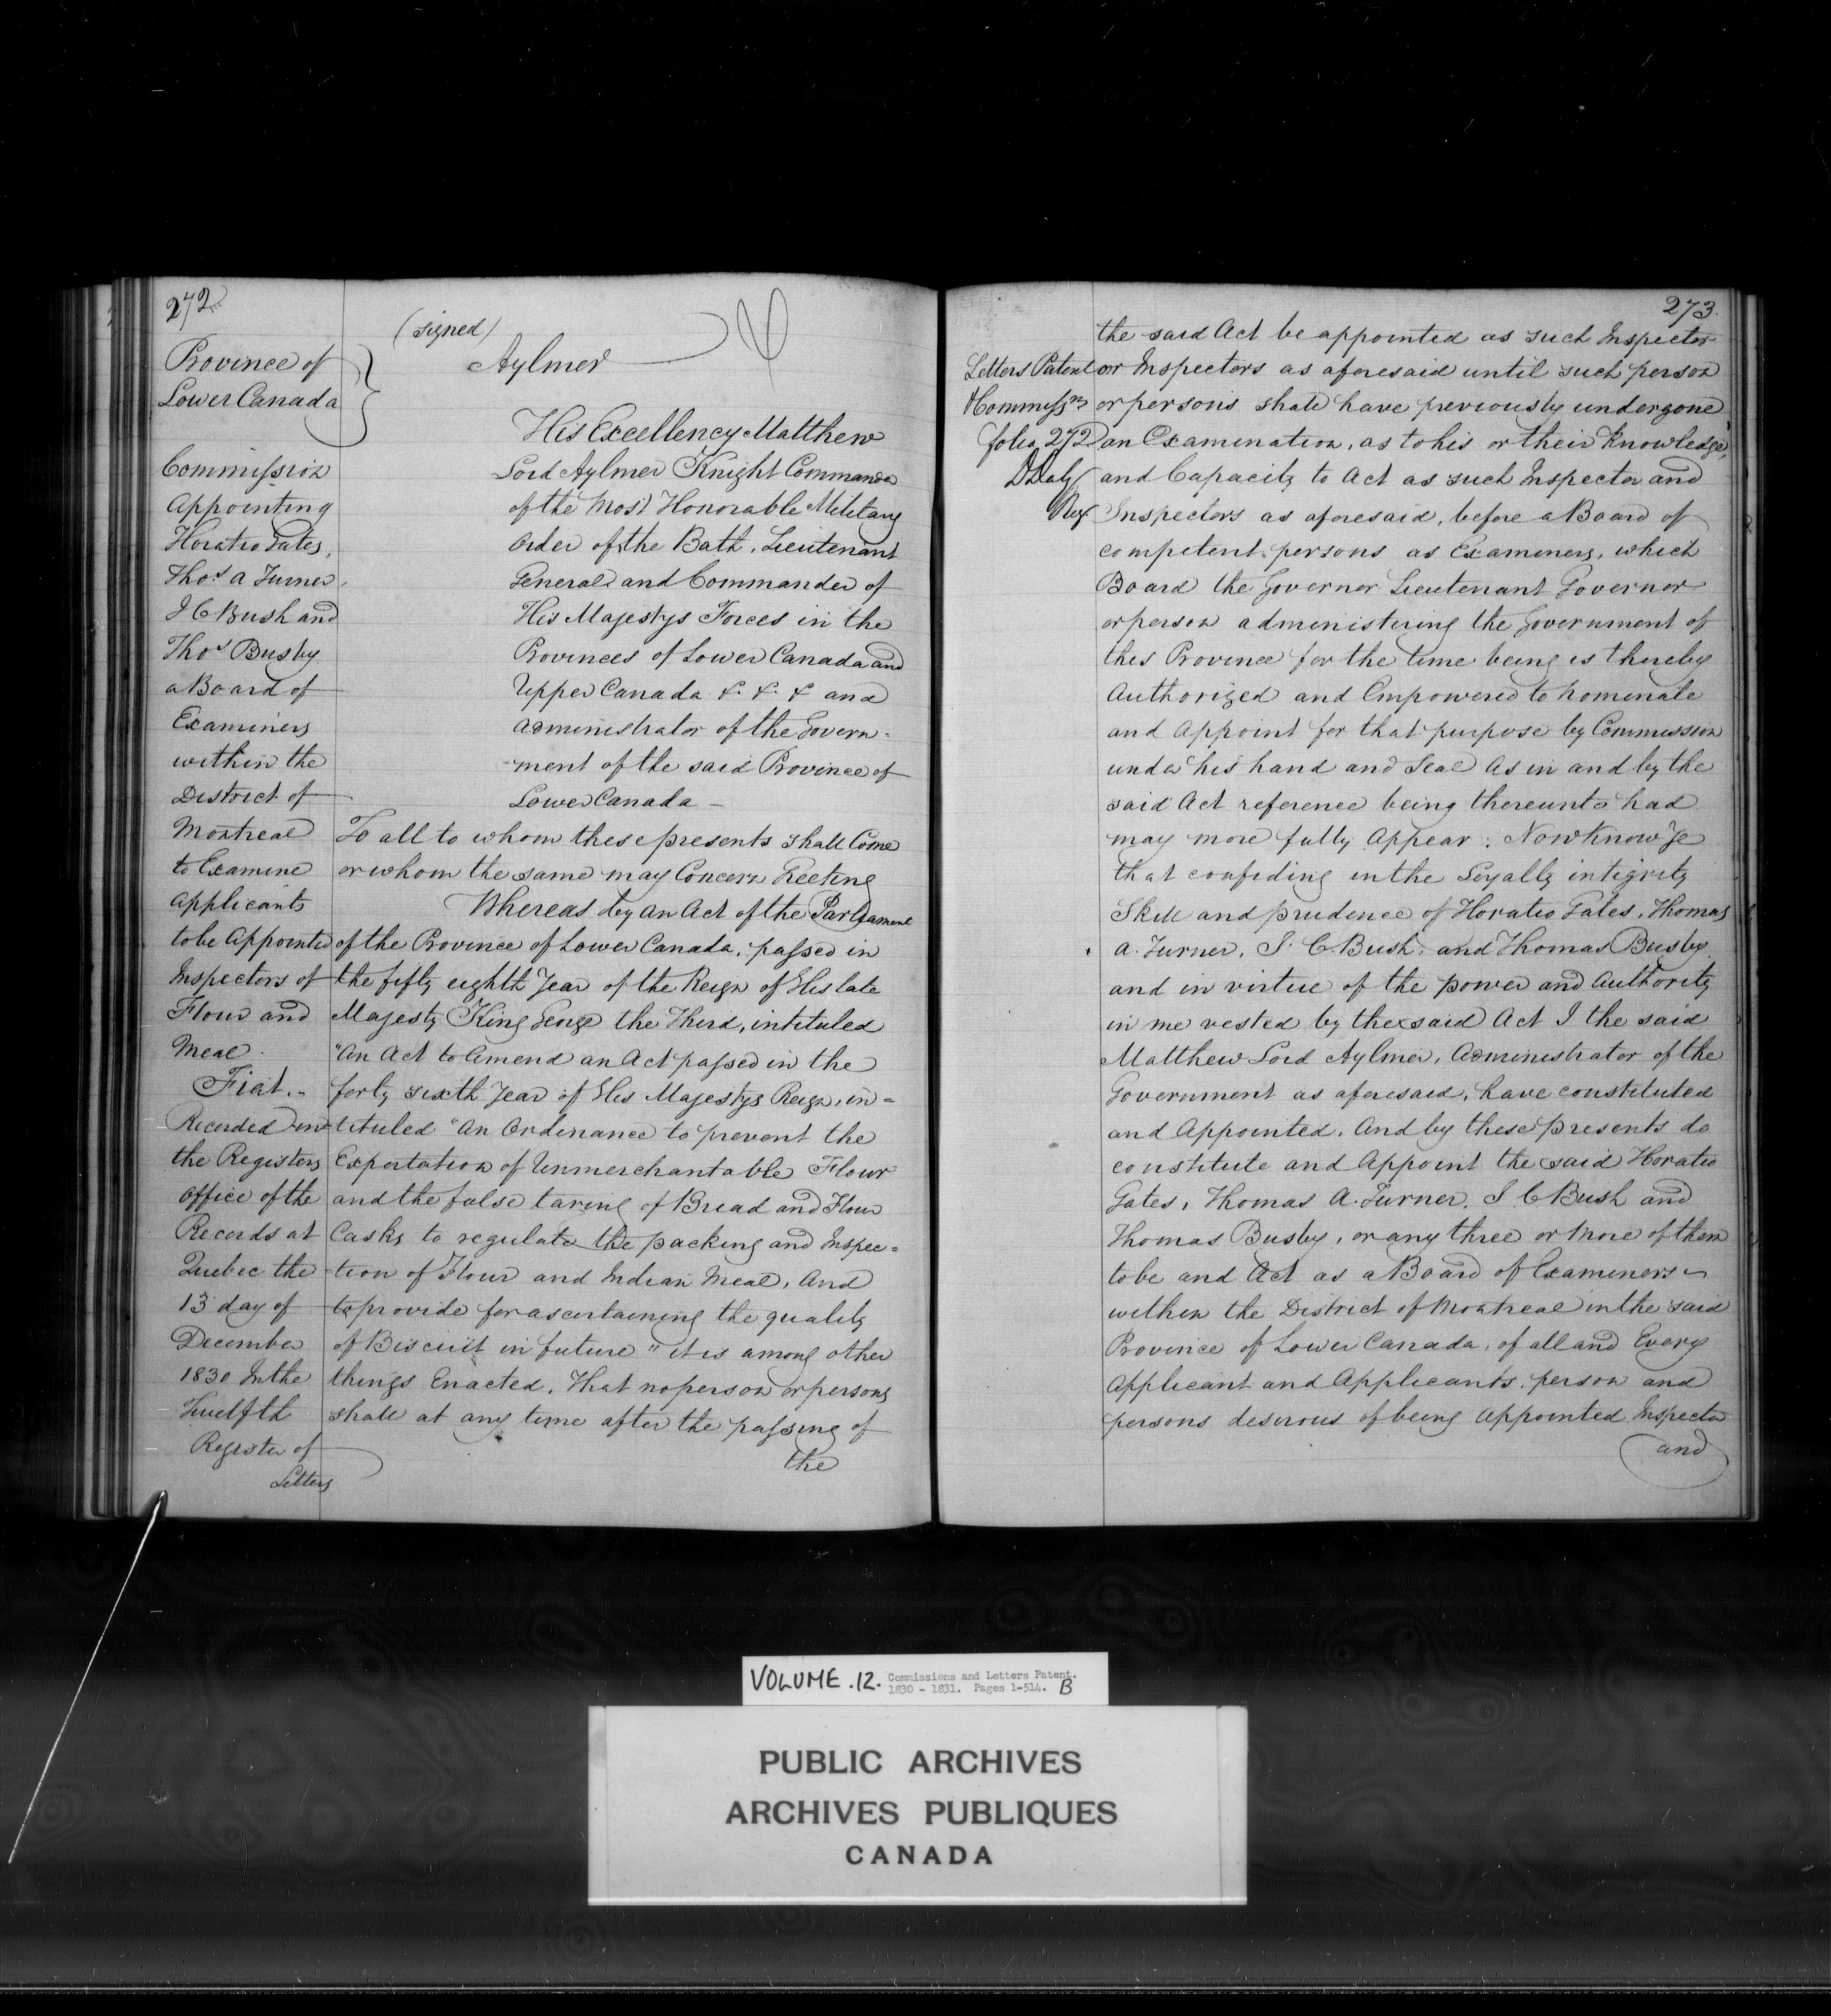 272
(signed)
Aylmer
Province of
Lower Canada
Commission
Appointing
Horatio Gates,
Thos. A Turner,
J C Bush and
Thos. Busby
a Board of
Examiners
within the
District of
Montreal
to Examine
Applicants
to be Appointed
Inspectors of
Flour and
Meal.
Fiat.
Recorded in
the Registers
Office of the
Records at
Quebec the
13 day of
December
1830 In the
Twelfth
Register of
Letters
His Excellency Matthew
Lord Aylmer Knight Commander
of the Most Honorable Military
Order of the Bath, Lieutenant
General and Commander of
His Majestys Forces in the
Provinces of Lower Canada and
Upper Canada &. &. & and
Administrator of the Govern-
-ment of the said Province of
Lower Canada -
To all to whom these presents shall Come
or whom the same may Concern Greeting
Whereas by an Act of the Parliament
of the Province of Lower Canada, passed in
the fifty eighth Year of the Reign of His late
Majesty King George the Third, intituled
"An Act to Amend an Act passed in the
forty sixth Year of His Majestys Reign, in=
=tituled "An Ordinance to prevent the
Exportation of Unmerchantable Flour
and the false taring of Bread and Flour
Casks to regulate the packing and Inspec=
-tion of Flour and Indian Meal, And
to provide for ascertaining the quality
of Biscuit in future" it is among other
things Enacted, That no person or persons
shall at any time after the passing of
the
273.
Letters Patent
& Commissns
folio 272
D Daly
Reg.
the said Act be appointed as such Inspector
or Inspectors as aforesaid until such person
or persons shall have previously undergone
an Examination, as to his or their Knowledge,
and Capacity to Act as such Inspector and
Inspectors as aforesaid, before a Board of
competent persons as Examiners, which
Board the Governor Lieutenant Governor
or person administering the Government of
this Province for the time being is thereby
Authorized and Empowered to nominate
and Appoint for that purpose by Commission
under his hand and Seal As in and by the
said Act reference being thereunto had
may more fully Appear: Now Know Ye
that confiding in the Loyalty intigrity
Skill and prudence of Horatio Gates, Thomas
A. Turner, J. C. Bush, and Thomas Busby
and in virtue of the power and Authority
in me vested by the said Act I the said
Matthew Lord Aylmer, Administrator of the
Government as aforesaid, have constituted
and Appointed, And by these presents do
constitute and Appoint the said Horatio
Gates, Thomas A. Turner, J C Bush and
Thomas Busby, or any three or More of them
to be and Act as a Board of Examiners
within the District of Montreal in the said
Province of Lower Canada, of all and Every
Applicant and Applicants, person and
persons desirous of being Appointed Inspector
and
VOLUME.12. Commissions and Letters Patent.
1830 - 1831. Pages 1-514. B
PUBLIC ARCHIVES
ARCHIVES PUBLIQUES
CANADA